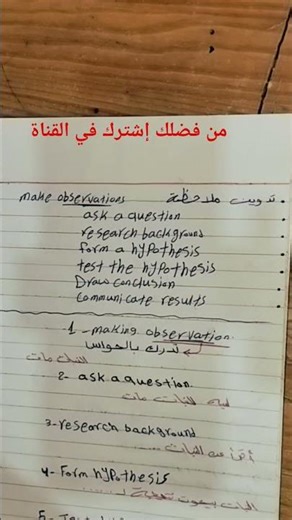 من فضلك إشترك في القناة
make observations تدوين ملاحظة
ask a question
research background
form a hypothesis
test the hypothesis
Draw conclusion
Communicate results
1- making observation
ندرك بالحواس
النبات مات
2- ask a question
ليه النبات مات
3- research background
أقرأ عن النبات
4- Form hypothesis
النبات بيموت
5-